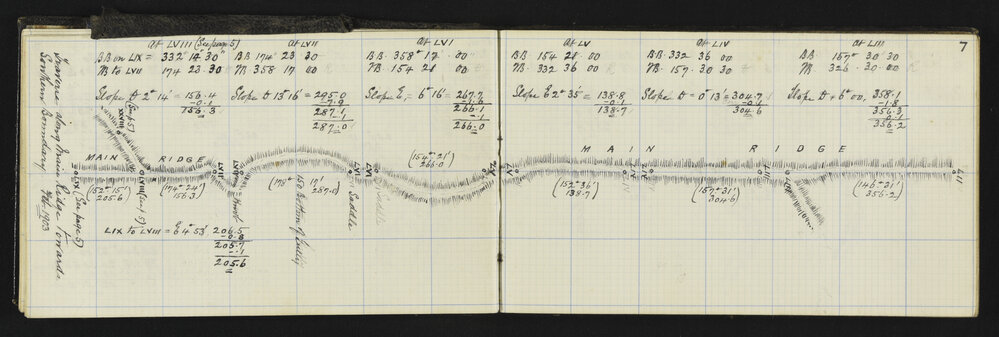 7
Traverse along Main Ridge towards
Southern Boundary Feb. 1903
At LVIII (See page 5)
BB on LIX = 332° 14' 30"
NB to LVII 174 23 30
Slope D 2° 14' = 156.4
-0.1
156.3
At LVII
BB 174 23 30
NB 358 17 00
Slope D 13° 16' = 295.0
-7.9
287.1
-.1
287.0
At LVI
BB 358° 17 00
NB 154 21 00
Slope E = 6° 16' = 267.7
-1.6
266.1
-.1
266.0
At LV
BB 154 21 00
NB 332 36 00
Slope E 2° 35' = 138.8
-0.1
138.7
At LIV
BB 332 36 00
NB 157 30 30
Slope D = 0° 13' = 304.7
-0.1
304.6
At LIII
BB 157° 30 30
NB 326 30
Slope D = 6° 00' 358.1
-1.8
356.3
0.1
356.2
XXVIII (See p 5)
MAIN RIDGE
MAIN RIDGE
LIX (See page 5)
(152° 15')
205.6
LVIII (Sent 5)
(174° 24')
156.3
LVII
LVII
Knob
(178° 17'
287.0)
150 Bottom of Gully
LVI
Saddle
LVI
Saddle
(154° 21')
266.0
LV
(152° 36')
138.7
LIV
LIV
(157° 31')
304.6
LIII
LIII
(146° 21')
356.2
LII
LIX to LVIII = E 4° 53' 206.5
-0.8
205.7
-.1
205.6